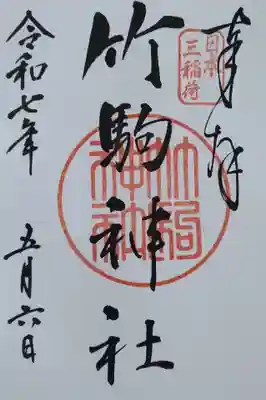 奉拝
日本
三稲荷
竹駒神社
竹駒
神社
令和七年
五月六日